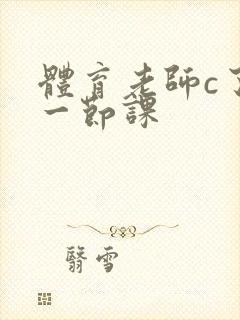 體育老師c了
一節課
翳雪